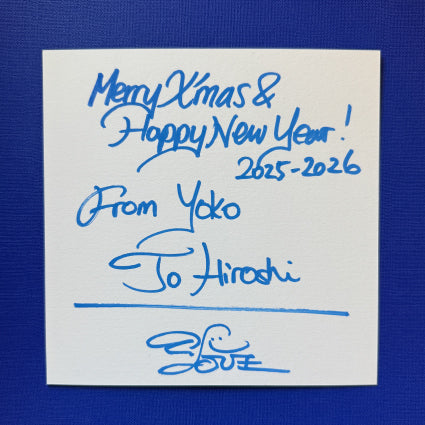 Merry X'mas &
Happy New Year!
2025-2026
From Yoko
To Hiroshi
LOVE